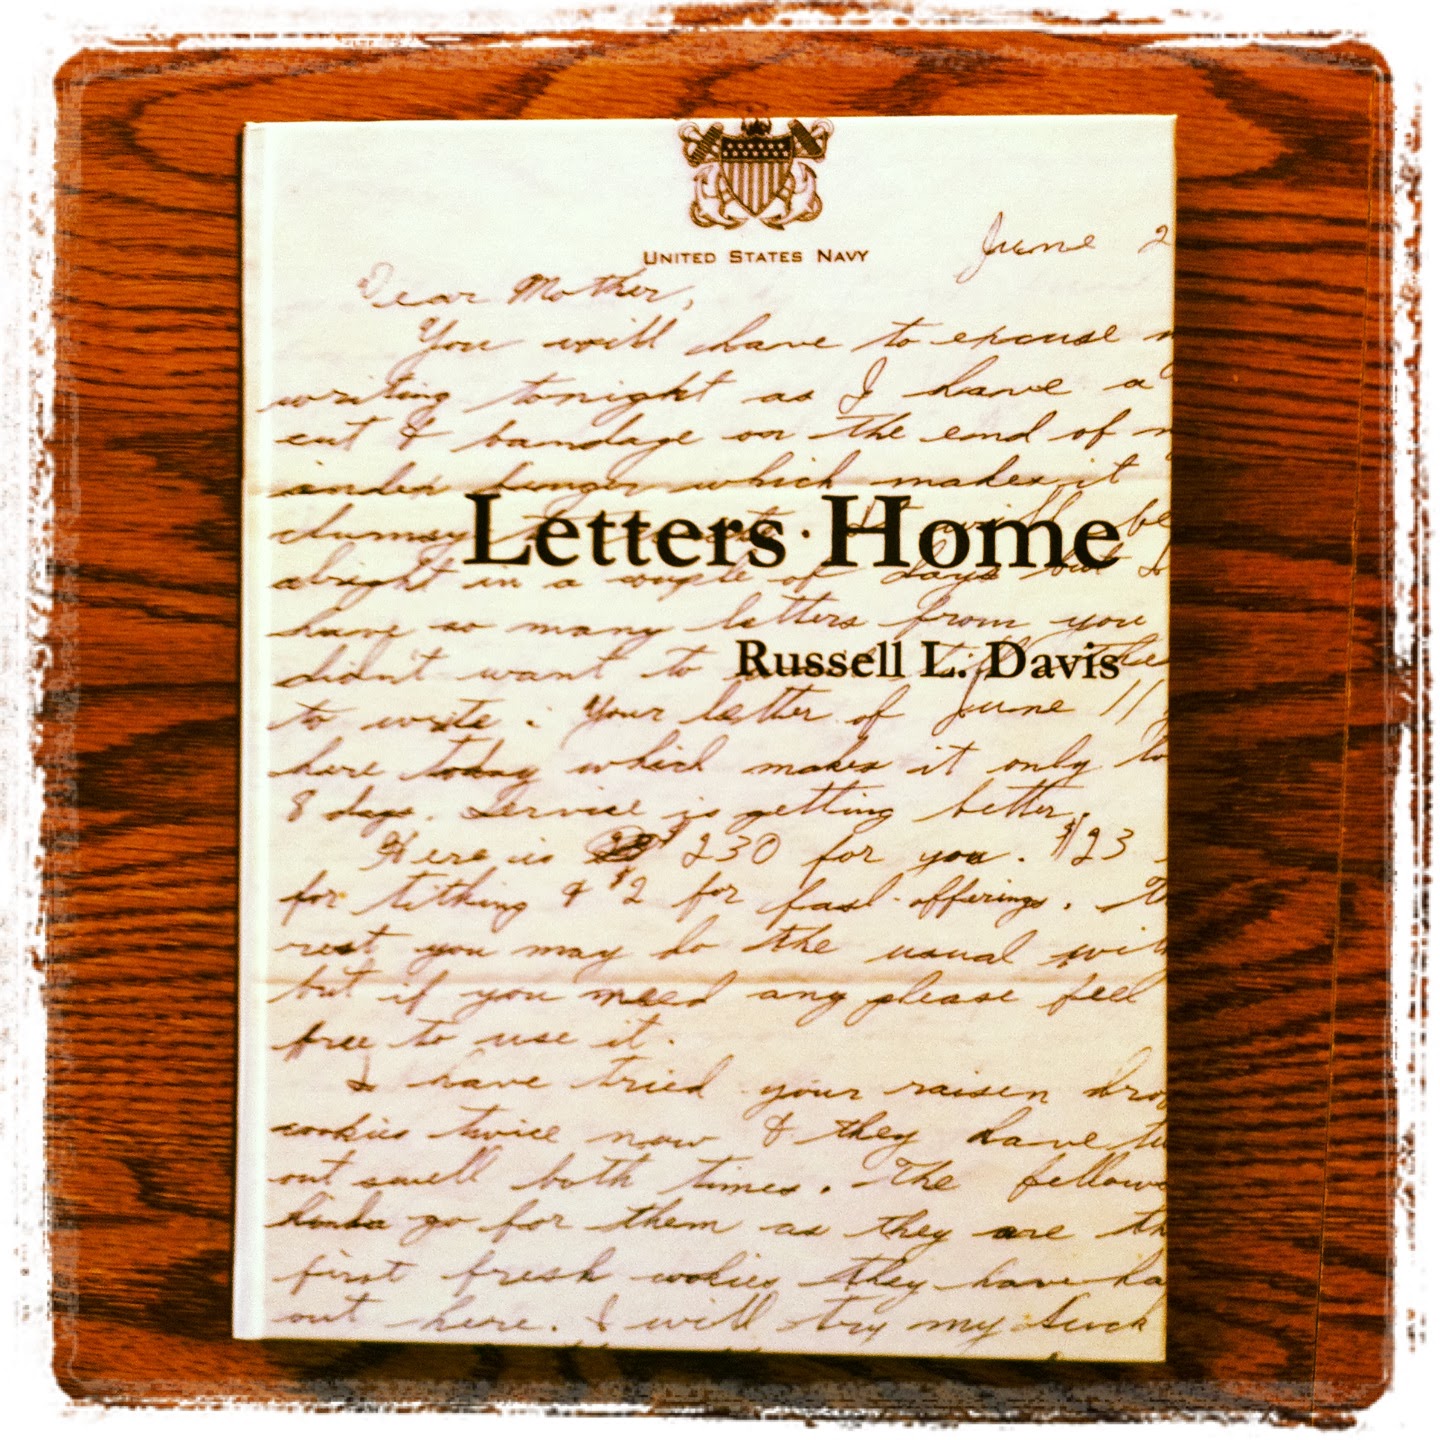 UNITED STATES NAVY
June 2
Dear Mother,
You will have to excuse m
writing tonight as I have a
cut & bandage on the end of m
index finger which makes it
clumsy
Letters Home
alright in a couple of days but I
have so many letters from you
Russell L. Davis
didn't want to
to write. Your letter of June 11
here today which makes it only
8 days. Service is getting better.
Here is $230 for you. $23
for tithing & $2 for fast-offerings. Th
rest you may do the usual with
but if you need any please feel
free to use it.
I have tried your raisen drop
cookies twice now & they have tu
out swell both times. The fellows
kinda go for them as they are th
first fresh cookies they have ha
out here. I will try my luck